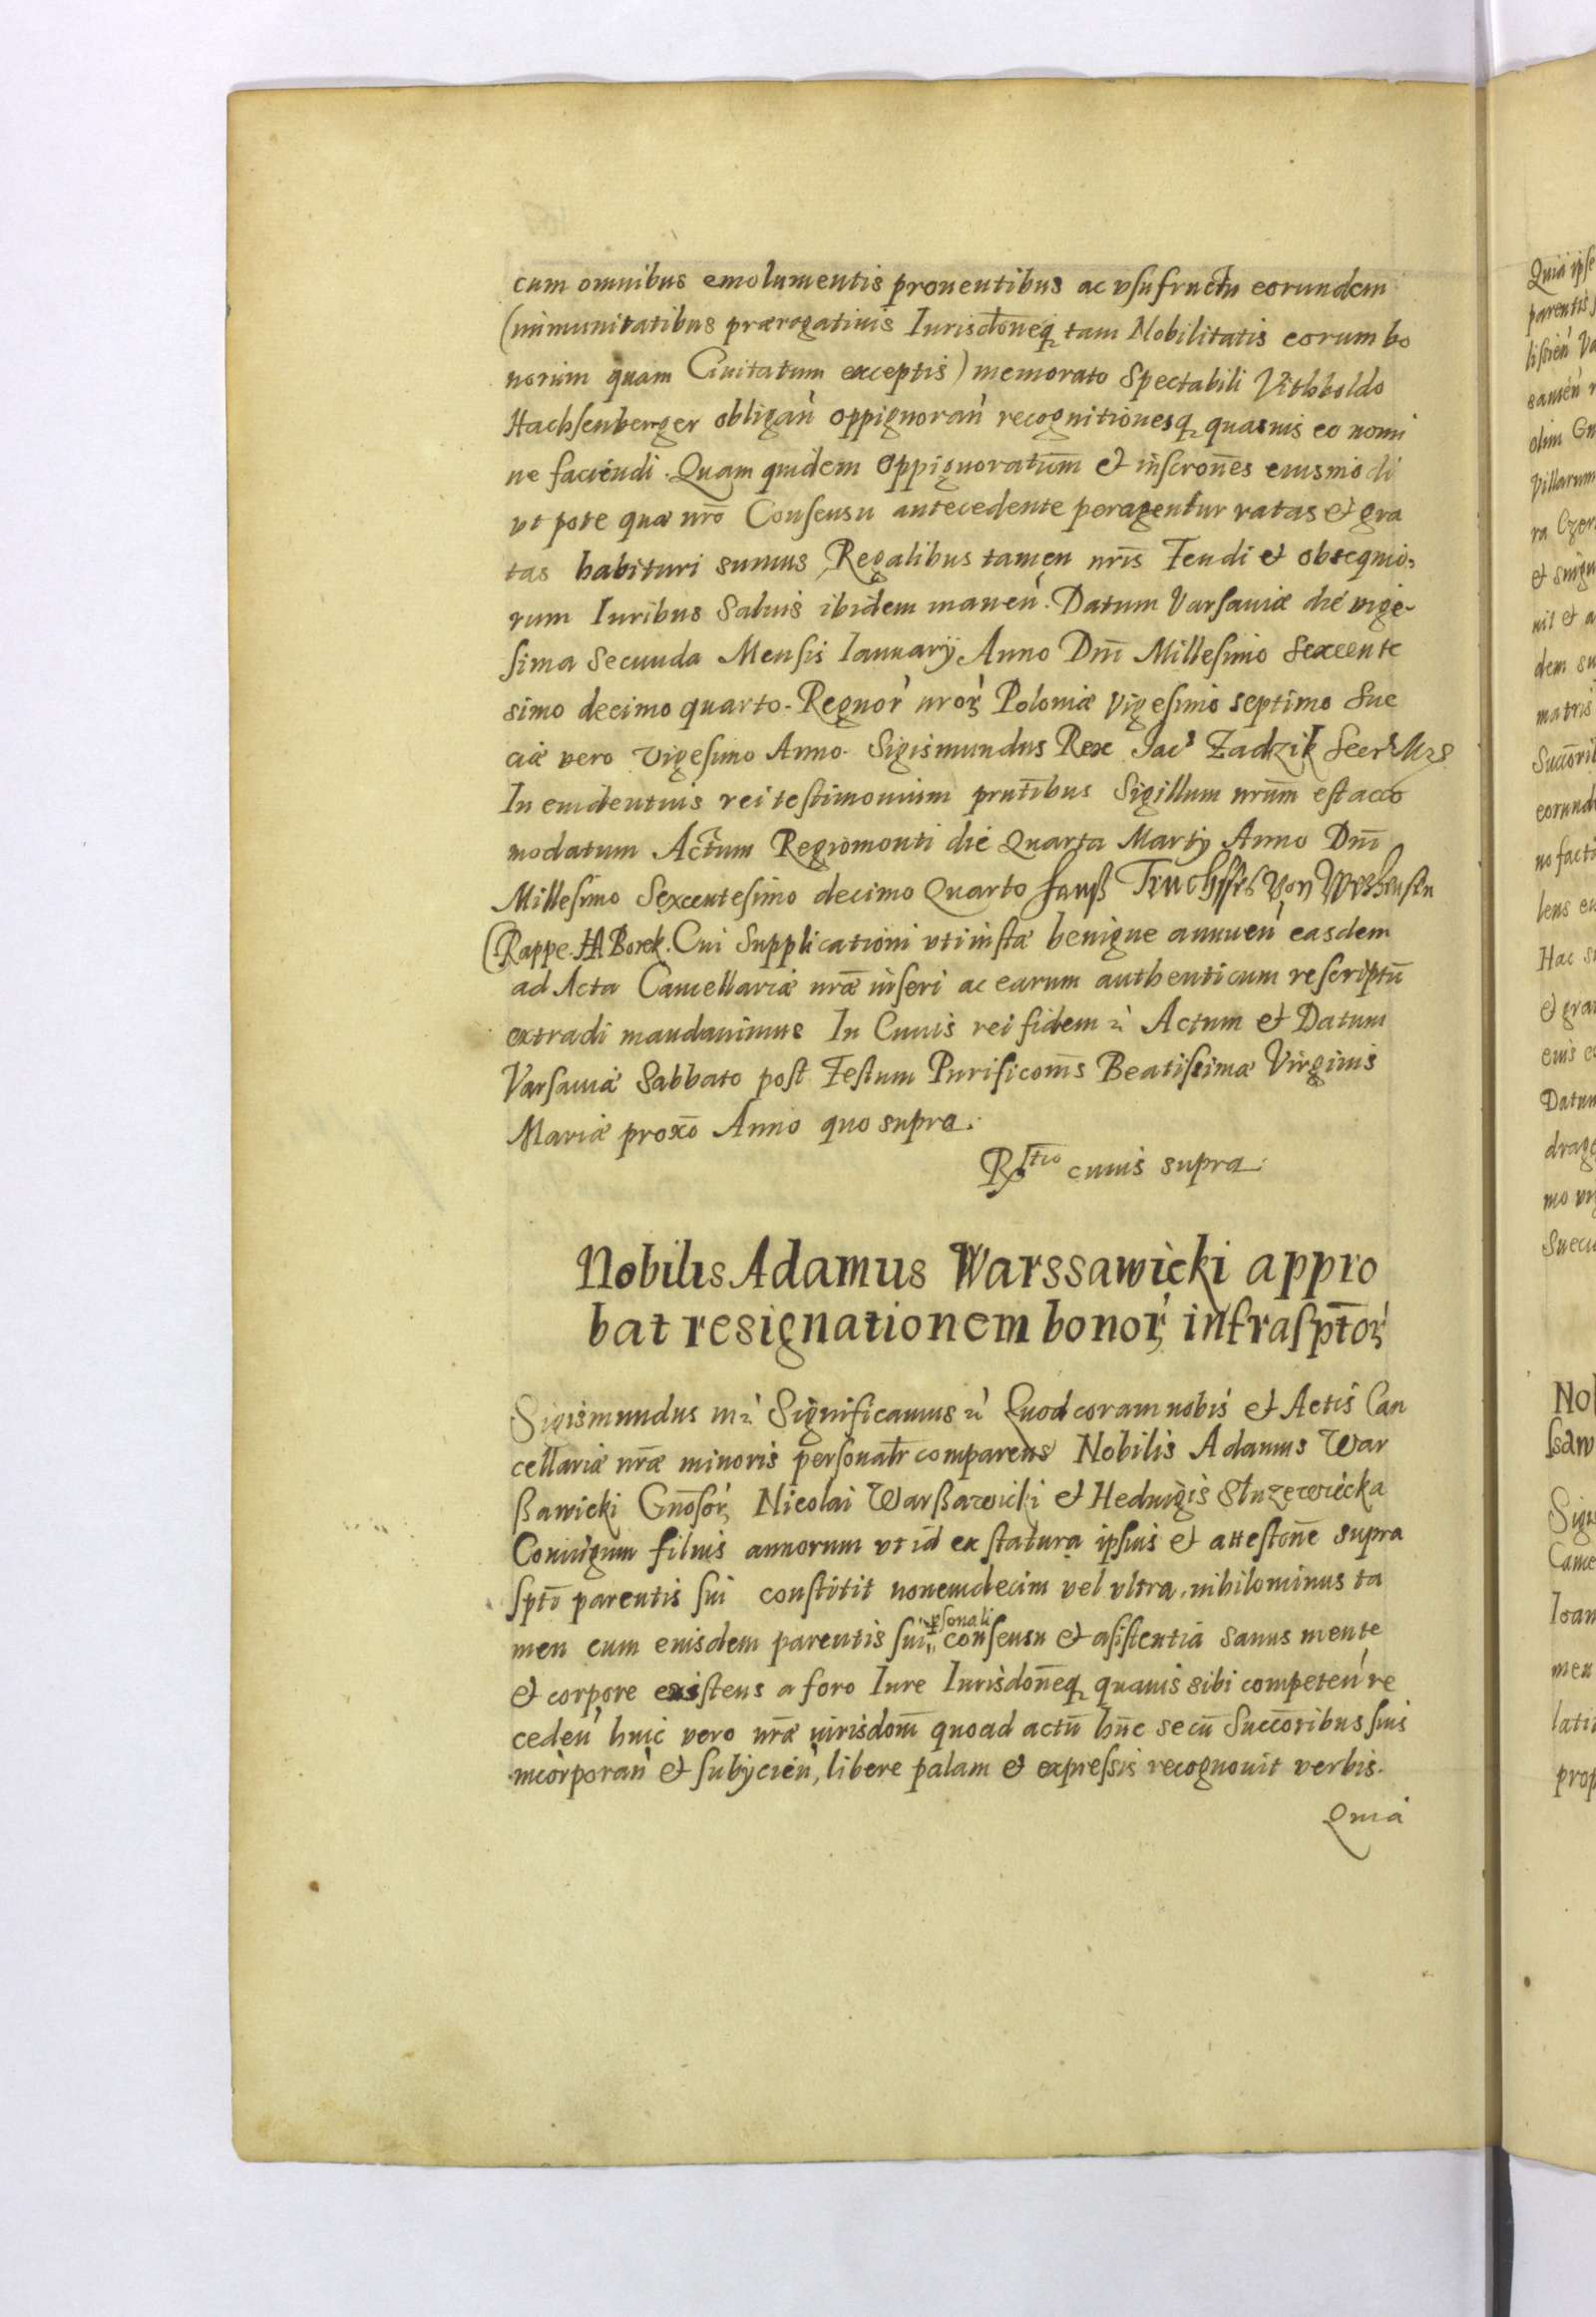 cum omnibus emolumentis prouentibus ac vsufructu eorundem
(immunitatibus prærogatiuis Iurisdoneq tam Nobilitatis eorum bo
norum quam Ciuitatum exceptis) memorato Spectabili Vithboldo
Hachsenberger obligan oppignoran recognitionesq quasuis eo nomi
ne faciendi. Quam quidem Oppignoratum et inscrones eiusmodi
vt pote quæ nro Consensu antecedente peragentur ratas et gra
tas habituri sumus Regalibus tamen nris Feudi et obsequio,
rum Iuribus Saluis ibidem manen. Datum Varsauiæ die vige-
sima Secunda Mensis Ianuarÿ Anno Dni Millesimo Sexcente
simo decimo quarto. Regnor nror Poloniæ vigesimo septimo Sue
ciæ vero vigesimo Anno. Sigismundus Rex Iac⁹ Zadzik Secr
In euidentius rei testimonium pntibus Sigillum nrum est acco
modatum Actum Regiomonti die Quarta Martÿ Anno Dni
Millesimo Sexcentesimo decimo Quarto Hanß Truchsses Von
Rappe. HA Borek. Cui Supplicationi vti iustæ benigne annuen easdem
ad Acta Cancellariæ nræ inseri ac earum authenticum rescriptu
extradi mandauimus In Cuius rei fidem Actum et Datum
Varsauiæ Sabbato post Festum Purificonis Beatissimæ Virginis
Mariæ proxo Anno quo supra.
Rtio cuius supra.
Nobilis Adamus Warssawicki appro
bat resignationem bonor infrasptor
Sigismundus Significamus Quod coram nobis et Actis Can
cellariæ nræ minoris personalr comparens Nobilis Adamus War
ßawicki Gnosor Nicolai Warßawicki et Heduigis Sluzewiecka
Coniugum filius annorum vt id ex statura ipsius et attestone supra
spto parentis sui constitit nonemdecim vel vltra, nihilominus ta
men cum eiusdem parentis sui psonali consensu et asistentia sanus mente
et corpore existens a foro Iure Iurisdoneq quauis sibi competen re
ceden huic vero nræ iurisdoni quoad actu hnc secu Succoribus suis
incorporan et subÿcien, libere palam et expressis recognouit verbis.
Quia